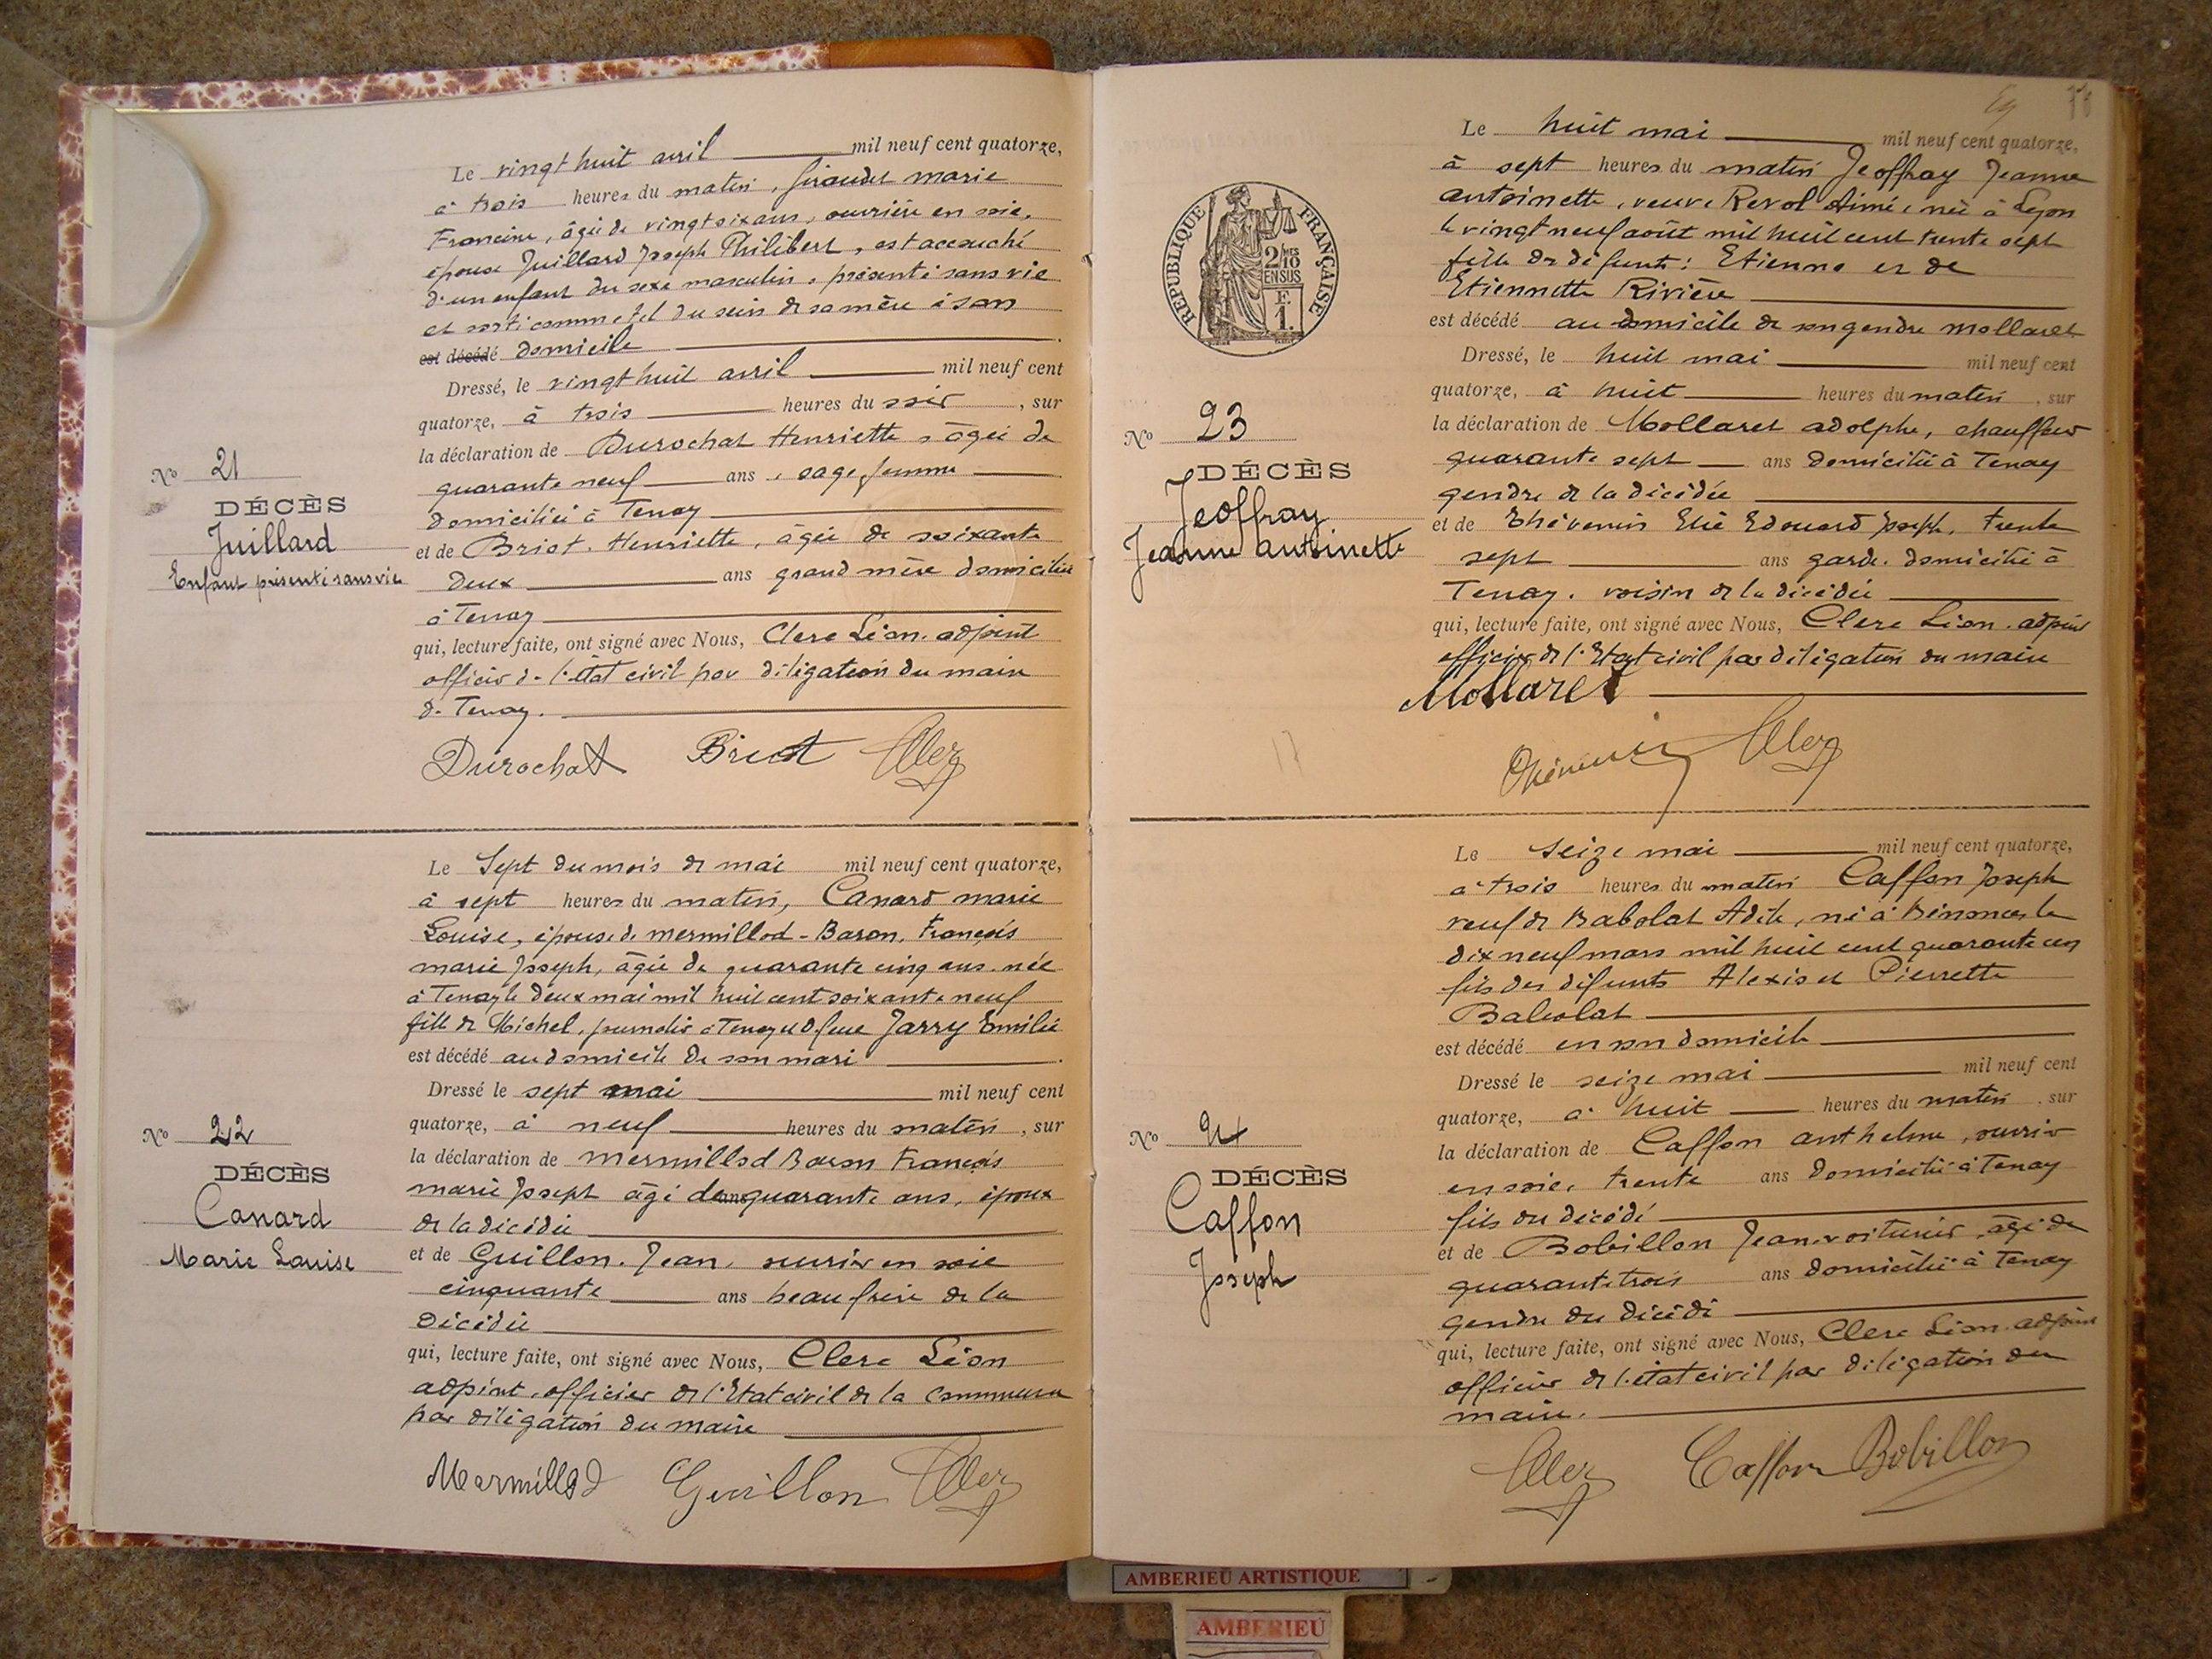 Le vingt huit avril mil neuf cent quatorze,
à trois heures du matin, Giraudet marie
Francine, âgée de vingt six ans, ouvrière en soie,
épouse Juillard Joseph Philibert, est accouché
d'un enfant du sexe masculin, présenté sans vie
et sorti comme tel du sein de sa mère à son
est décédé domicile
Dressé, le vingt huit avril mil neuf cent
quatorze, à trois heures du soir, sur
la déclaration de Durochat Henriette, âgée de
quarante neuf ans, sage femme
domiciliée à Tenay
et de Briot. Henriette, âgée de soixante
deux ans grand mère domiciliée
à Tenay
qui, lecture faite, ont signé avec Nous, Clerc Léon. adjoint
officier de l'état civil par délégation du maire
de Tenay.
Durochat Briot Clerc
No 21
DÉCÈS
Juillard
Enfant présenté sans vie
Le Sept du mois de mai mil neuf cent quatorze,
à sept heures du matin, Canard marie
Louise, épouse de mermillod-Baron, François
marie Joseph, âgée de quarante cinq ans. née
à Tenay le deux mai mil huit cent soixante neuf
fille de Michel, journalier à Tenay et de feue Jarry Emilie
est décédé au domicile de son mari
Dressé le sept mai mil neuf cent
quatorze, à neuf heures du matin, sur
la déclaration de mermillod Baron François
marie Joseph âgé de quarante ans, époux
de la décédée
et de Guillon. Jean, ouvrier en soie
cinquante ans beau frère de la
décédée
qui, lecture faite, ont signé avec Nous, Clerc Léon
adjoint, officier de l'Etat civil de la Commune
par délégation du maire
Mermillod Guillon Clerc
No 22
DÉCÈS
Canard
Marie Louise
Le huit mai mil neuf cent quatorze,
à sept heures du matin Jeoffray Jeanne
antoinette, veuve Revol Aimé, née à Lyon
le vingt neuf août mil huit cent trente sept
fille de défunts: Etienne et de
Etiennette Rivière
est décédé au domicile de son gendre mollaret
Dressé, le huit mai mil neuf cent
quatorze, à huit heures du matin, sur
la déclaration de Mollaret adolphe, chauffeur
quarante sept ans domicilié à Tenay
gendre de la décédée
et de Thévenin Elie Edouard Joseph, trente
sept ans garde. domicilié à
Tenay. voisin de la décédée
qui, lecture faite, ont signé avec Nous, Clerc Léon. adjoint
officier de l'Etat civil par délégation du maire
Mollaret
Thévenin Clerc
REPUBLIQUE FRANÇAISE
2/10
EN SUS
F.
1.
No 23
DÉCÈS
Jeoffray
Jeanne antoinette
Le seize mai mil neuf cent quatorze,
à trois heures du matin Caffon Joseph
veuf de Babolat Adèle, né à Bénonces le
dix neuf mars mil huit cent quarante un
fils des défunts Alexis et Pierrette
Babolat
est décédé en son domicile
Dressé le seize mai mil neuf cent
quatorze, à huit heures du matin, sur
la déclaration de Caffon anthelme, ouvrier
en soie, trente ans domicilié à Tenay
fils du décédé
et de Bobillon Jean, voiturier, âgé de
quarante trois ans domicilié à Tenay
gendre du décédé
qui, lecture faite, ont signé avec Nous, Clerc Léon. adjoint
officier de l'état civil par délégation du
maire.
Clerc Caffon Bobillon
No 24
DÉCÈS
Caffon
Joseph
AMBERIEU ARTISTIQUE
AMBERIEU